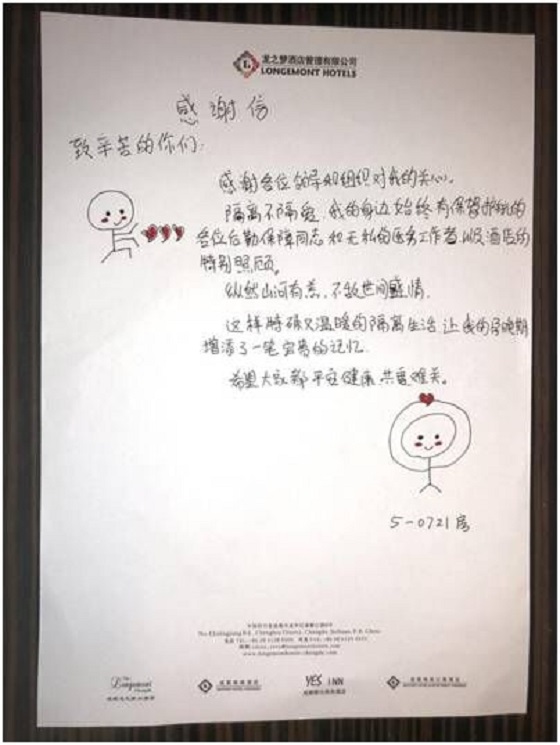 龙之梦酒店管理有限公司
LONGEMONT HOTELS
感谢信
致辛苦的你们:
感谢各位领导和组织对我的关心。
隔离不隔爱,我的身边始终有保驾护航的
各位后勤保障同志和无私的医务工作者,以及酒店的
特别照顾。
纵然山河有恙,不敌世间盛情.
这样特殊又温暖的隔离生活,让我的孕晚期
增添了一笔宝贵的记忆.
希望大家都平安健康,共度难关。
5-0721房
The
Longemont
YES iNN